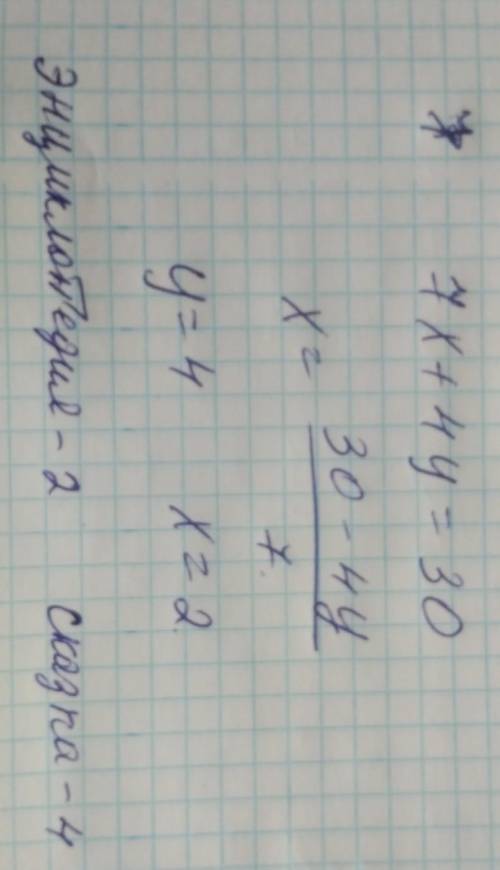 *
7x + 4y = 30
x = \frac{30 - 4y}{7}
y = 4 x = 2
Энциклопедия - 2 сказка - 4